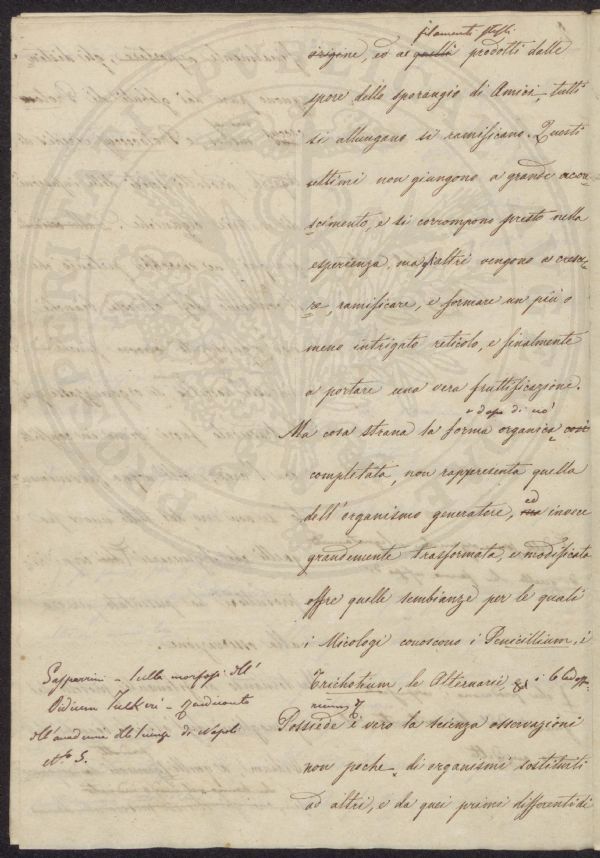 filamenti stessi
origine, ed ai quelli prodotti dalle
spore dello sporangio di Amici, tutti
si allungano si ramificano. Questi
ultimi non giungono a grande accre-
scimento, e si corrompono presto nella
esperienza, ma gli altri vengono a cresce-
re, ramificare, e formare un più o
meno intrigato reticolo, e finalmente
a portare una vera fruttificazione.
e dopo di ciò
Ma cosa strana la forma organica, così
completata, non rappresenta quella
ed
dell'organismo generatore, ma invece
grandemente trasformata, e modificata
offre quelle sembianze per le quali
i Micologi conoscono i Penicillium, i
Trichotium, le Alternarie, i Clados-
Possiede è vero la scienza osservazioni
non poche, di organismi sostituiti
ad altri, e da quei primi differenti di
Gasparrini - Sulla morfosi dell'
Oidium Tuckeri - Rendiconto
dell'accademia delle scienze di Napoli
N.o 5.